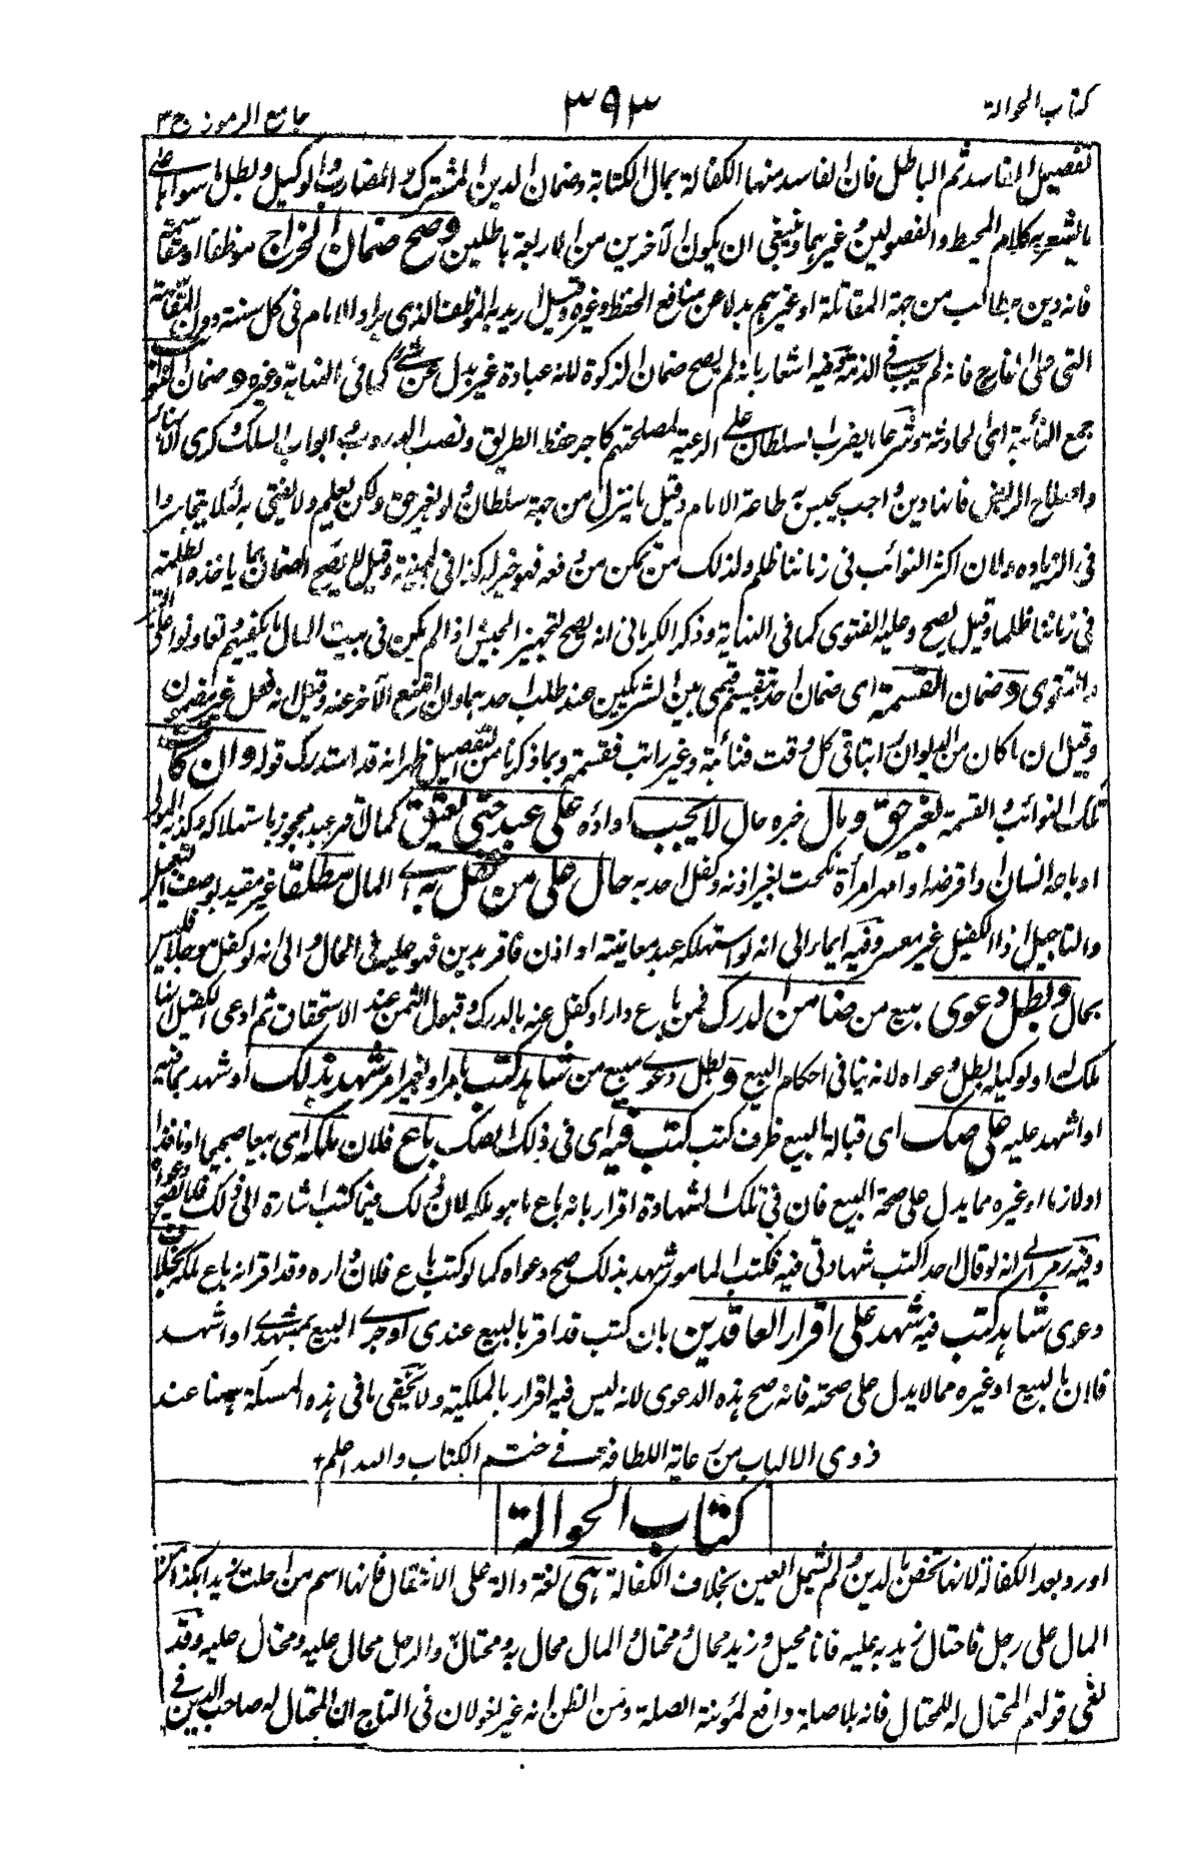 كتاب الحوالة
٣٩٣
جامع الرموز ج٣
تفصيل الفاسد ثم الباطل فان الفاسد منها الكفالة بمال الكتابة وضمان الدين المشترك والمضارب والوكيل ولبطل ما سواها على
ما يشعر به كلام المحيط والفصولين وغيرهما وينبغى ان يكون الآخرين من الاربعة باطلين وصح ضمان الخراج موظفا او مقاسمة
فانه دين يطالب من جهة المقاتلة او غيرهم بدلا عن منافع الحفظ وغيره وقيل اريد به الموظف الذى يراه الامام فى كل سنة دون المقاسمة
التى هى الخارج فانه لم يجب فى الذمة وفيه اشعار بانه لم يصح ضمان الزكوة لانه عبادة غير بدل عن شئ كما فى النهاية وغيره وضمان النوائب
جمع النائبة اى الحادثة وشرعا ما يضرب السلطان على الرعية لمصلحتهم كاجر حفظ الطريق ونصب الدروب وابواب السلك وكرى الانهار
واصطلاح الربض فانها دين واجب يحبس به طاعة الامام وقيل ما ينزل من جهة سلطان ولو بغير حق ولكن يعلم ولا يفتى به لئلا يتجاسروا
فى الزيادة ولان اكثر النوائب فى زماننا ظلم ولذلك من تمكن من دفعه فهو خير له كذا فى المنية وقيل لا يصح الضمان بما ياخذه الظلمة
فى زماننا ظلما وقيل يصح وعليه الفتوى كما فى النهاية وذكر الكرمانى انه يصح لتجهيز الجيش اذا لم يكن فى بيت المال ما يكفيهم تعاونوا على البر
والتقوى وضمان القسمة اى ضمان احد تقسيم قيمى بين الشريكين عند طلب احدهما وان امتنع الآخر عنه وقيل انه فعل غير مضمون
وقيل ان ما كان من الديوان راتبا فى كل وقت فنائبة وغير راتب فقسمة وبما ذكرنا من التفصيل ظهر انه قد استدرك قوله وان كانت
تلك النوائب والقسمة لغير حق ومال خبره حال لا يجب اداؤه على عبد حتى يعتق كمال اقر عبد محجور باستهلاكه وكذبه المولى
او باعه انسان او اقرضه او امهر امرأة نكحت بغير اذنه وكفل احد به حال على من كفل به اى المال مطلقا غير مقيد بوصف التعجيل
والتاجيل اذا الكفيل غير معسر وفيه ايماء الى انه لو استهلكه عبد معاينة او اذن فاقر بدين فهو عليه فى الحال والى انه لو كفل مؤجلا ليس
بحال وبطل دعوى بيع من ضامن الدرك فمن باع دارا وكفل عنه بالدرك وقبول الثمن عند الاستحقاق ثم ادعى الكفيل انها
ملك له او لوكيله بطل دعواه لانه ينافى احكام البيع وبطل دعوى مبيع من شاهد كتب بامر او لغير امر شهد بذلك او شهد بما فيه
او اشهد عليه على صك اى قبالة البيع ظرف كتب كتب فيه اى فى ذلك الصك باع فلان ملكه اى بيعا صحيحا او نافذا
او لازما او غيره مما يدل على صحة البيع فان فى تلك الشهادة اقرار بانه باع ما هو ملكه لان ذلك فيما كتب اشارة الى ذلك فلا تصح دعواه
وفيه رمز الى انه لو قال احد اكتب شهادتى فيه فكتب المامور شهد بذلك صح دعواه كما لو كتب باع فلان داره وقد اقر انه باع ملكه بخلاف
دعوى شاهد كتب فيه شهد على اقرار العاقدين بان كتب قد اقر بالبيع عندى او جرى البيع بمشهدى او اشهد
فلان بالبيع او غيره مما لا يدل على صحته فانه صح هذه الدعوى لانه ليس فيه اقرار بالملكية ولا يخفى ما فى هذه المسئلة ههنا عند
ذوى الالباب من رعاية اللطافة فى ختم الكتاب والله اعلم
كتاب الحوالة
اورد بعد الكفالة لانها تختص بالدين ولم تشمل العين بخلاف الكفالة هى لغة دالة على الانتقال فانها اسم من احلت زيدا بكذا من
المال على رجل فاحتال زيد به عليه فانا محيل وزيد محال ومحتال والمال محال به ومحتال به والرجل محال عليه ومحتال عليه وقد
لغى قولهم المحتال له للمحتال فانه بلا صلة دافع لمؤنة الصلة ومن الظن انه غير لغو لان فى التاج ان المحتال له صاحب الدين فى